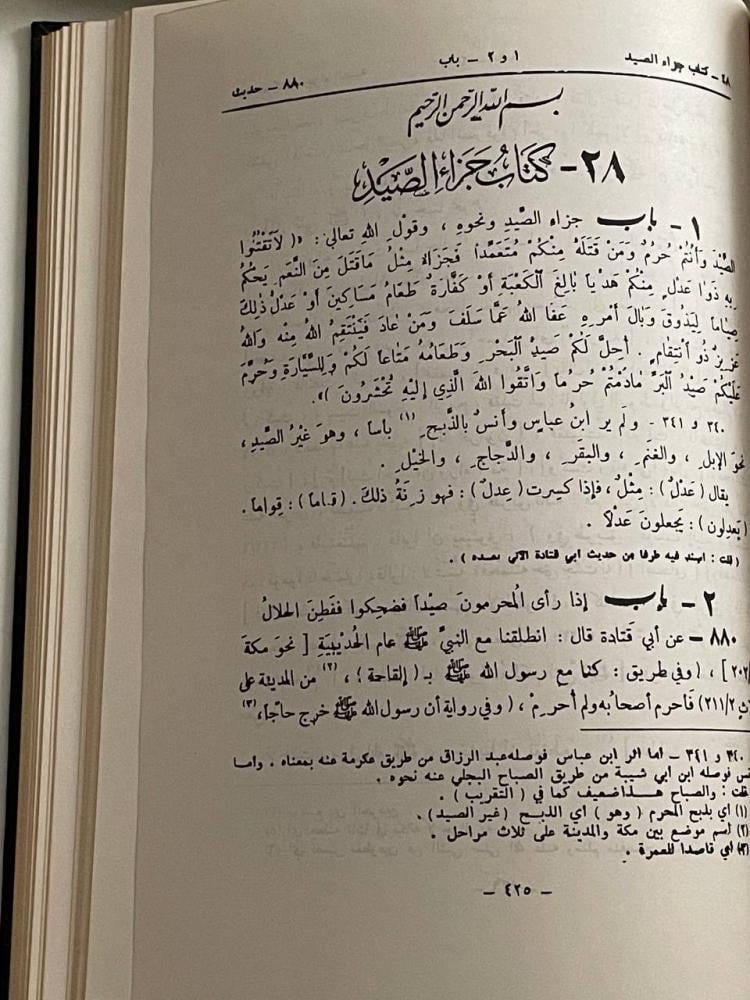 ٢٨ - كتاب جزاء الصيد ١ و ٢ - باب ٨٨٠ - حديث
بسم الله الرحمن الرحيم
٢٨- كِتَابُ جَزَاءِ الصَّيْدِ
١ - باب جزاء الصَّيدِ ونحوِهِ ، وقولِ اللهِ تعالى : «( لَا تَقْتُلُوا
الصَّيْدَ وَأَنْتُمْ حُرُمٌ وَمَنْ قَتَلَهُ مِنْكُمْ مُتَعَمِّداً فَجَزَاءٌ مِثْلُ مَا قَتَلَ مِنَ النَّعَمِ يَحْكُمُ
بِهِ ذَوَا عَدْلٍ مِنْكُمْ هَدْياً بَالِغَ الْكَعْبَةِ أَوْ كَفَّارَةٌ طَعَامُ مَسَاكِينَ أَوْ عَدْلُ ذٰلِكَ
صِيَاماً لِيَذُوقَ وَبَالَ أَمْرِهِ عَفَا اللهُ عَمَّا سَلَفَ وَمَنْ عَادَ فَيَنْتَقِمُ اللهُ مِنْهُ وَاللهُ
عَزِيزٌ ذُو انْتِقَامٍ . أُحِلَّ لَكُمْ صَيْدُ الْبَحْرِ وَطَعَامُهُ مَتَاعاً لَكُمْ وَلِلسَّيَّارَةِ وَحُرِّمَ
عَلَيْكُمْ صَيْدُ الْبَرِّ مَا دُمْتُمْ حُرُماً وَاتَّقُوا اللهَ الَّذِي إِلَيْهِ تُحْشَرُونَ )».
٣٤٠ و ٣٤١ - ولم يرَ ابنُ عباسٍ وأنسٌ بالذَّبحِ (١) بأساً ، وهوَ غيْرُ الصَّيدِ ،
نحوَ الإبلِ ، والغنَمِ ، والبقَرِ ، والدَّجاجِ ، والخَيْلِ .
يقال (عَدْلُ) : مِثْلُ ، فإذا كسرت (عِدلٌ) : فهو زِنَةُ ذلكَ . (قياماً) : قِواماً .
(يَعدِلون) : يَجعلونَ عَدْلاً .
(قلت : اسند فيه طرفا من حديث ابي قتادة الآتي بعده ) .
٢ - باب إذا رأى المُحرمونَ صيْداً فضحِكوا ففَطِنَ الحلالُ
٨٨٠ - عن أبي قَتادة قال : انطلقنا مع النبيِّ ﷺ عام الحُدَيبِيَةِ [ نحوَ مكة
٢٠٢/] ، (وفي طريق : كنا مع رسول الله ﷺ بـ ( القاحة ) ، (٢) من المدينة على
ثٍ ٢١١/٢) فأحرم أصحابُه ولم أُحرِمْ ، (وفي رواية أن رسول الله ﷺ خرج حاجّاً، (٣)
٣٤٠ و ٣٤١ - أما اثر ابن عباس فوصله عبد الرزاق من طريق عكرمة عنه بمعناه . واما
فوصله ابن أبي شيبة من طريق الصباح البجلي عنه نحوه .
قلت : والصباح هذا ضعيف كما في ( التقريب ) .
(١) أي بذبح المحرم ( وهو ) أي الذبح ( غير الصيد).
(٢) اسم موضع بين مكة والمدينة على ثلاث مراحل .
(٣) أي قاصدا للعمرة .
- ٤٢٥ -